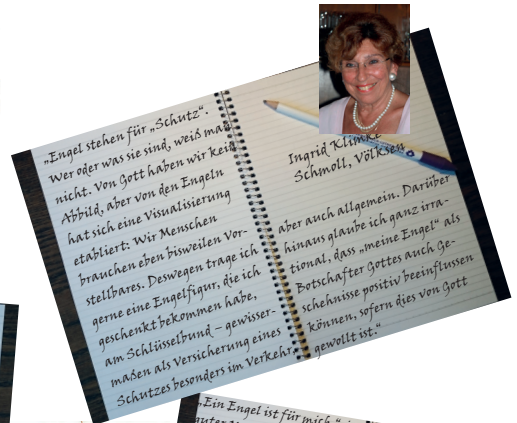 „Engel stehen für „Schutz“.
Wer oder was sie sind, weiß man
nicht. Von Gott haben wir kein
Abbild, aber von den Engeln
hat sich eine Visualisierung
etabliert. Wir Menschen
brauchen eben bisweilen Vor-
stellbares. Deswegen trage ich
gerne eine Engelfigur, die ich
geschenkt bekommen habe,
am Schlüsselbund – gewisser-
maßen als Versicherung eines
Schutzes besonders im Verkehr,
Ingrid Klimke
Schmoll, Völksen
aber auch allgemein. Darüber
hinaus glaube ich ganz irra-
tional, dass „meine Engel“ als
Botschafter Gottes auch Ge-
schehnisse positiv beeinflussen
können, sofern dies von Gott
gewollt ist.“
„Ein Engel ist für mich“